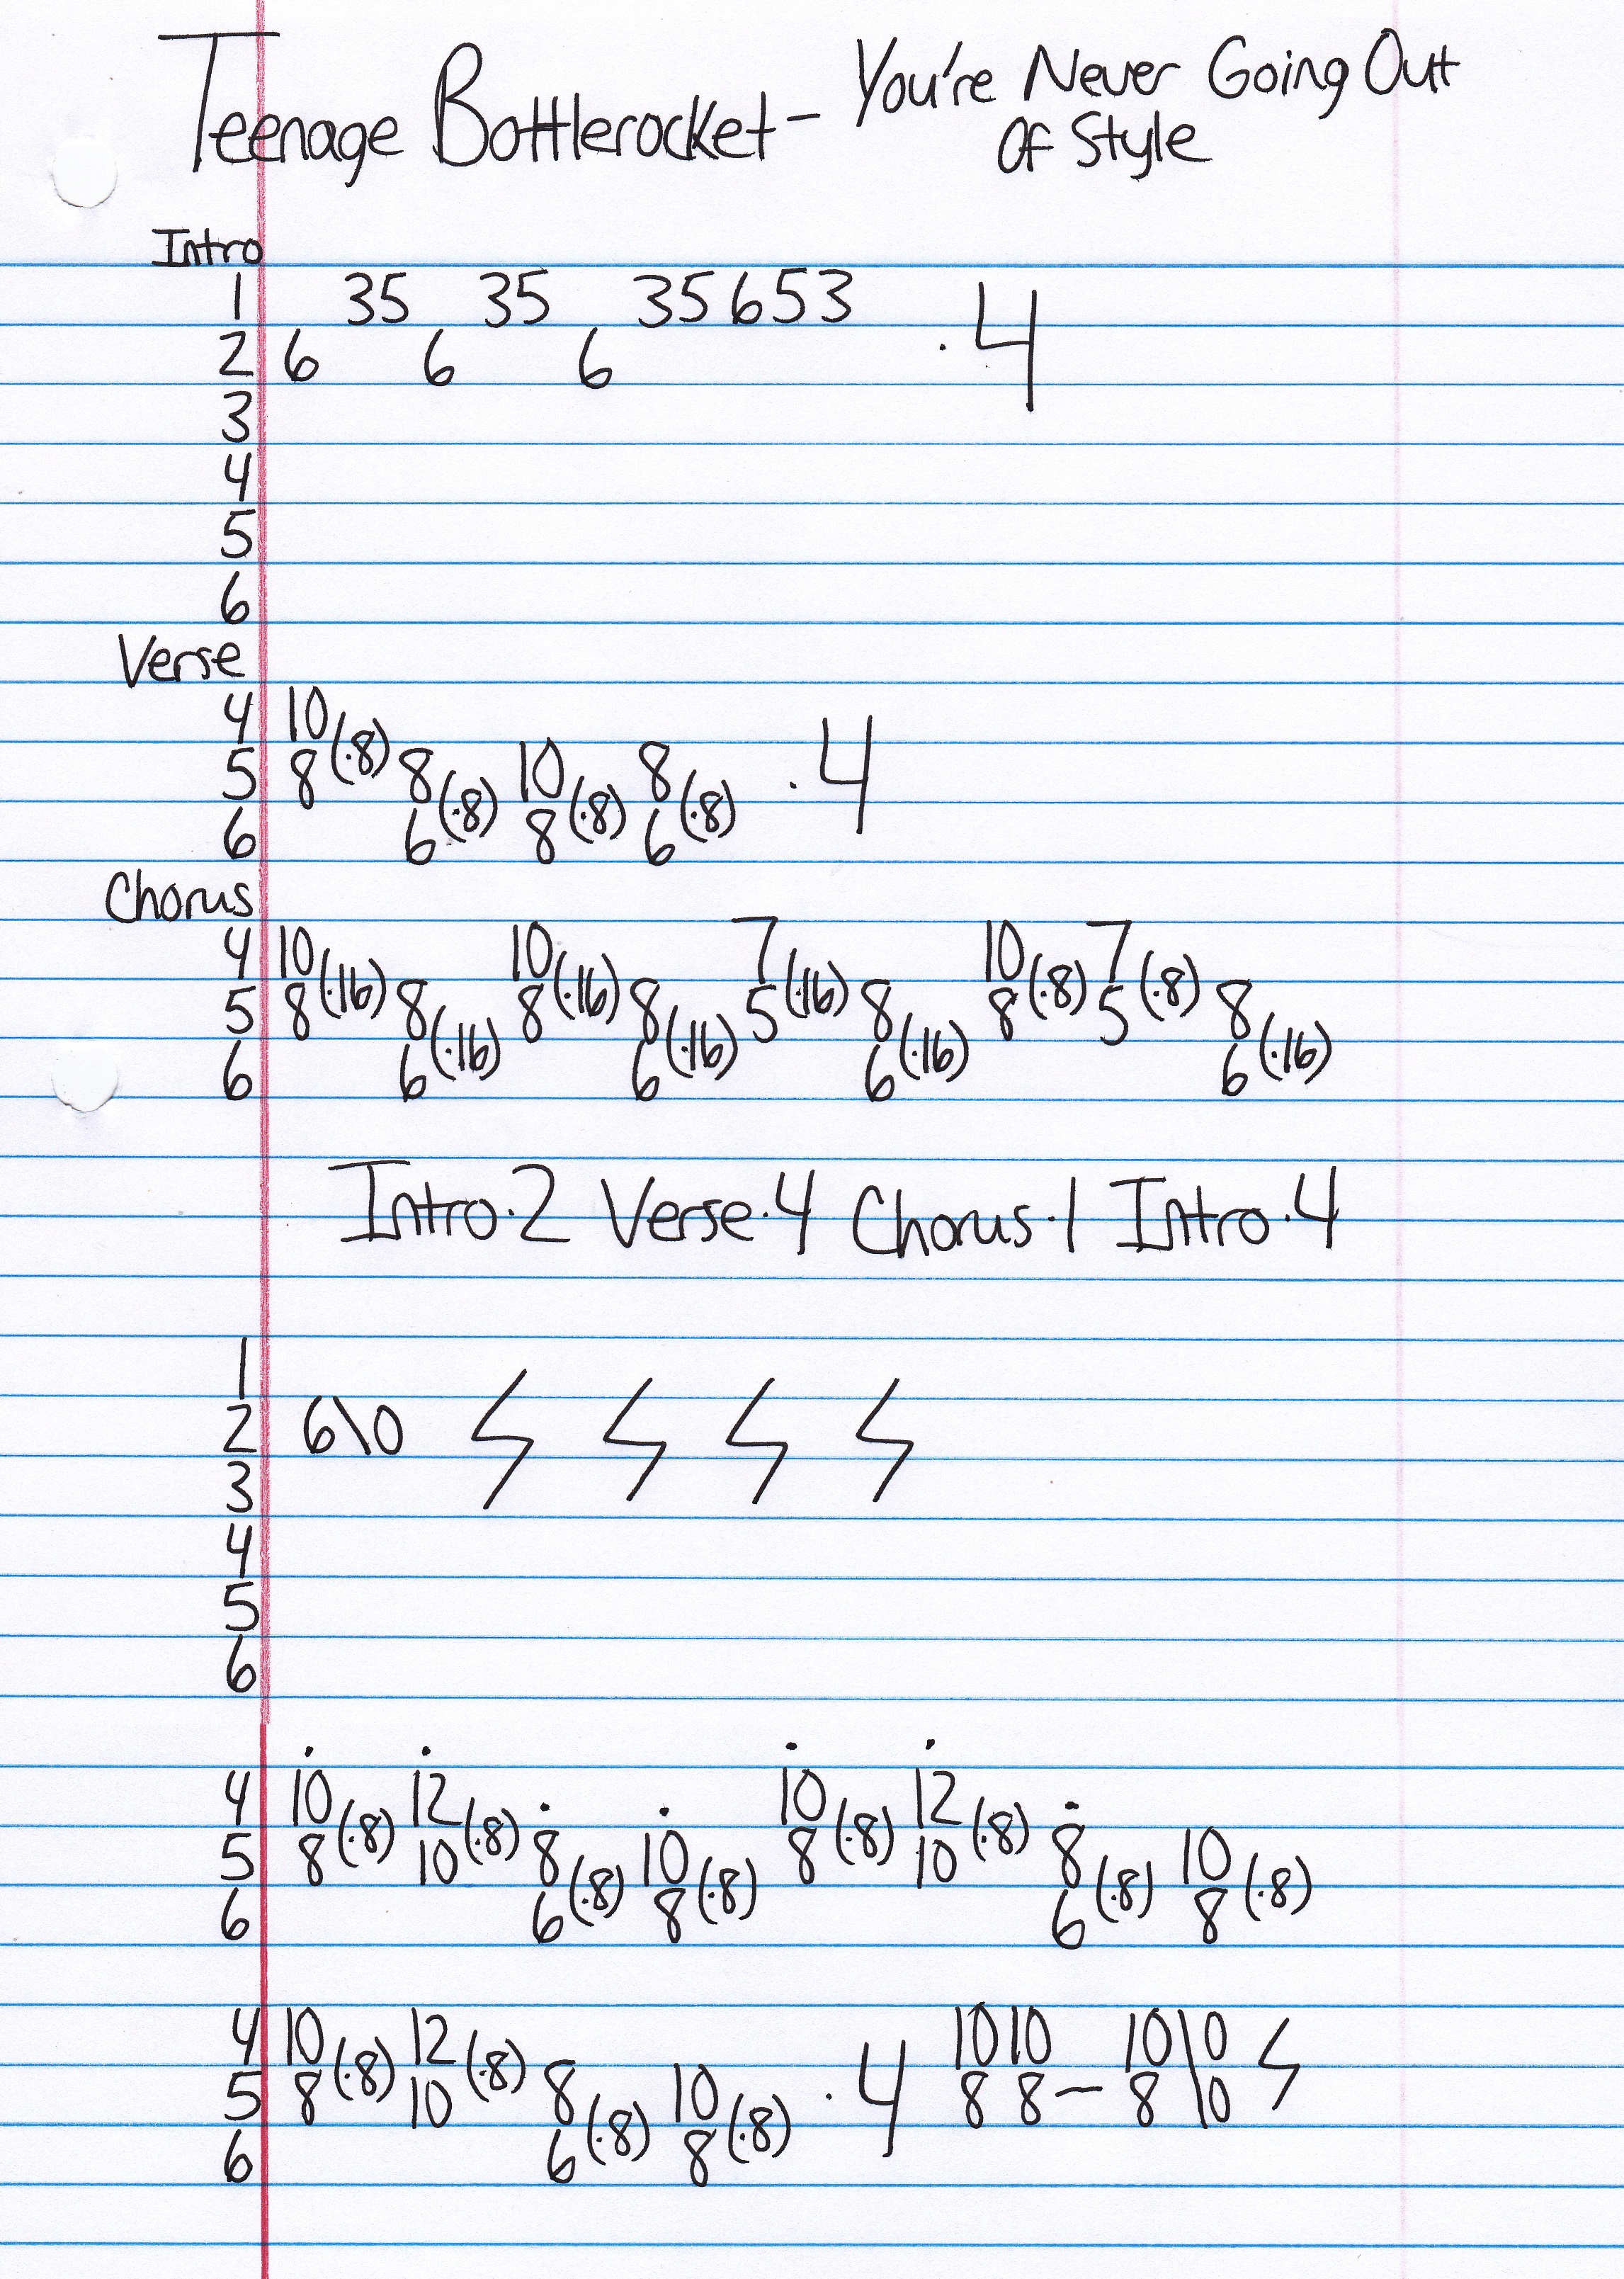 Teenage Bottlerocket - You're Never Going Out
Of Style
Intro
1 35 35 35653 .4
2 6 6 6
3
4
5
6
Verse
4 10
5 8(.8) 8 10 8 .4
6 6(.8) 8(.8) 6(.8)
Chorus
4 10 10 7 10 7
5 8(.16) 8 8(.16) 8 5(.16) 8 8(.8) 5(.8) 8
6 6(.16) 6(.16) 6(.16) 6(.16)
Intro.2 Verse.4 Chorus.1 Intro.4
1
2 6\0
3
4
5
6
4 10 12 10 12
5 8(.8) 10(.8) 8 10 8(.8) 10(.8) 8 10
6 6(.8) 8(.8) 6(.8) 8(.8)
4 10 12 10 10 10\0
5 8(.8) 10(.8) 8 10 .4 8 8 – 8\0
6 6(.8) 8(.8)